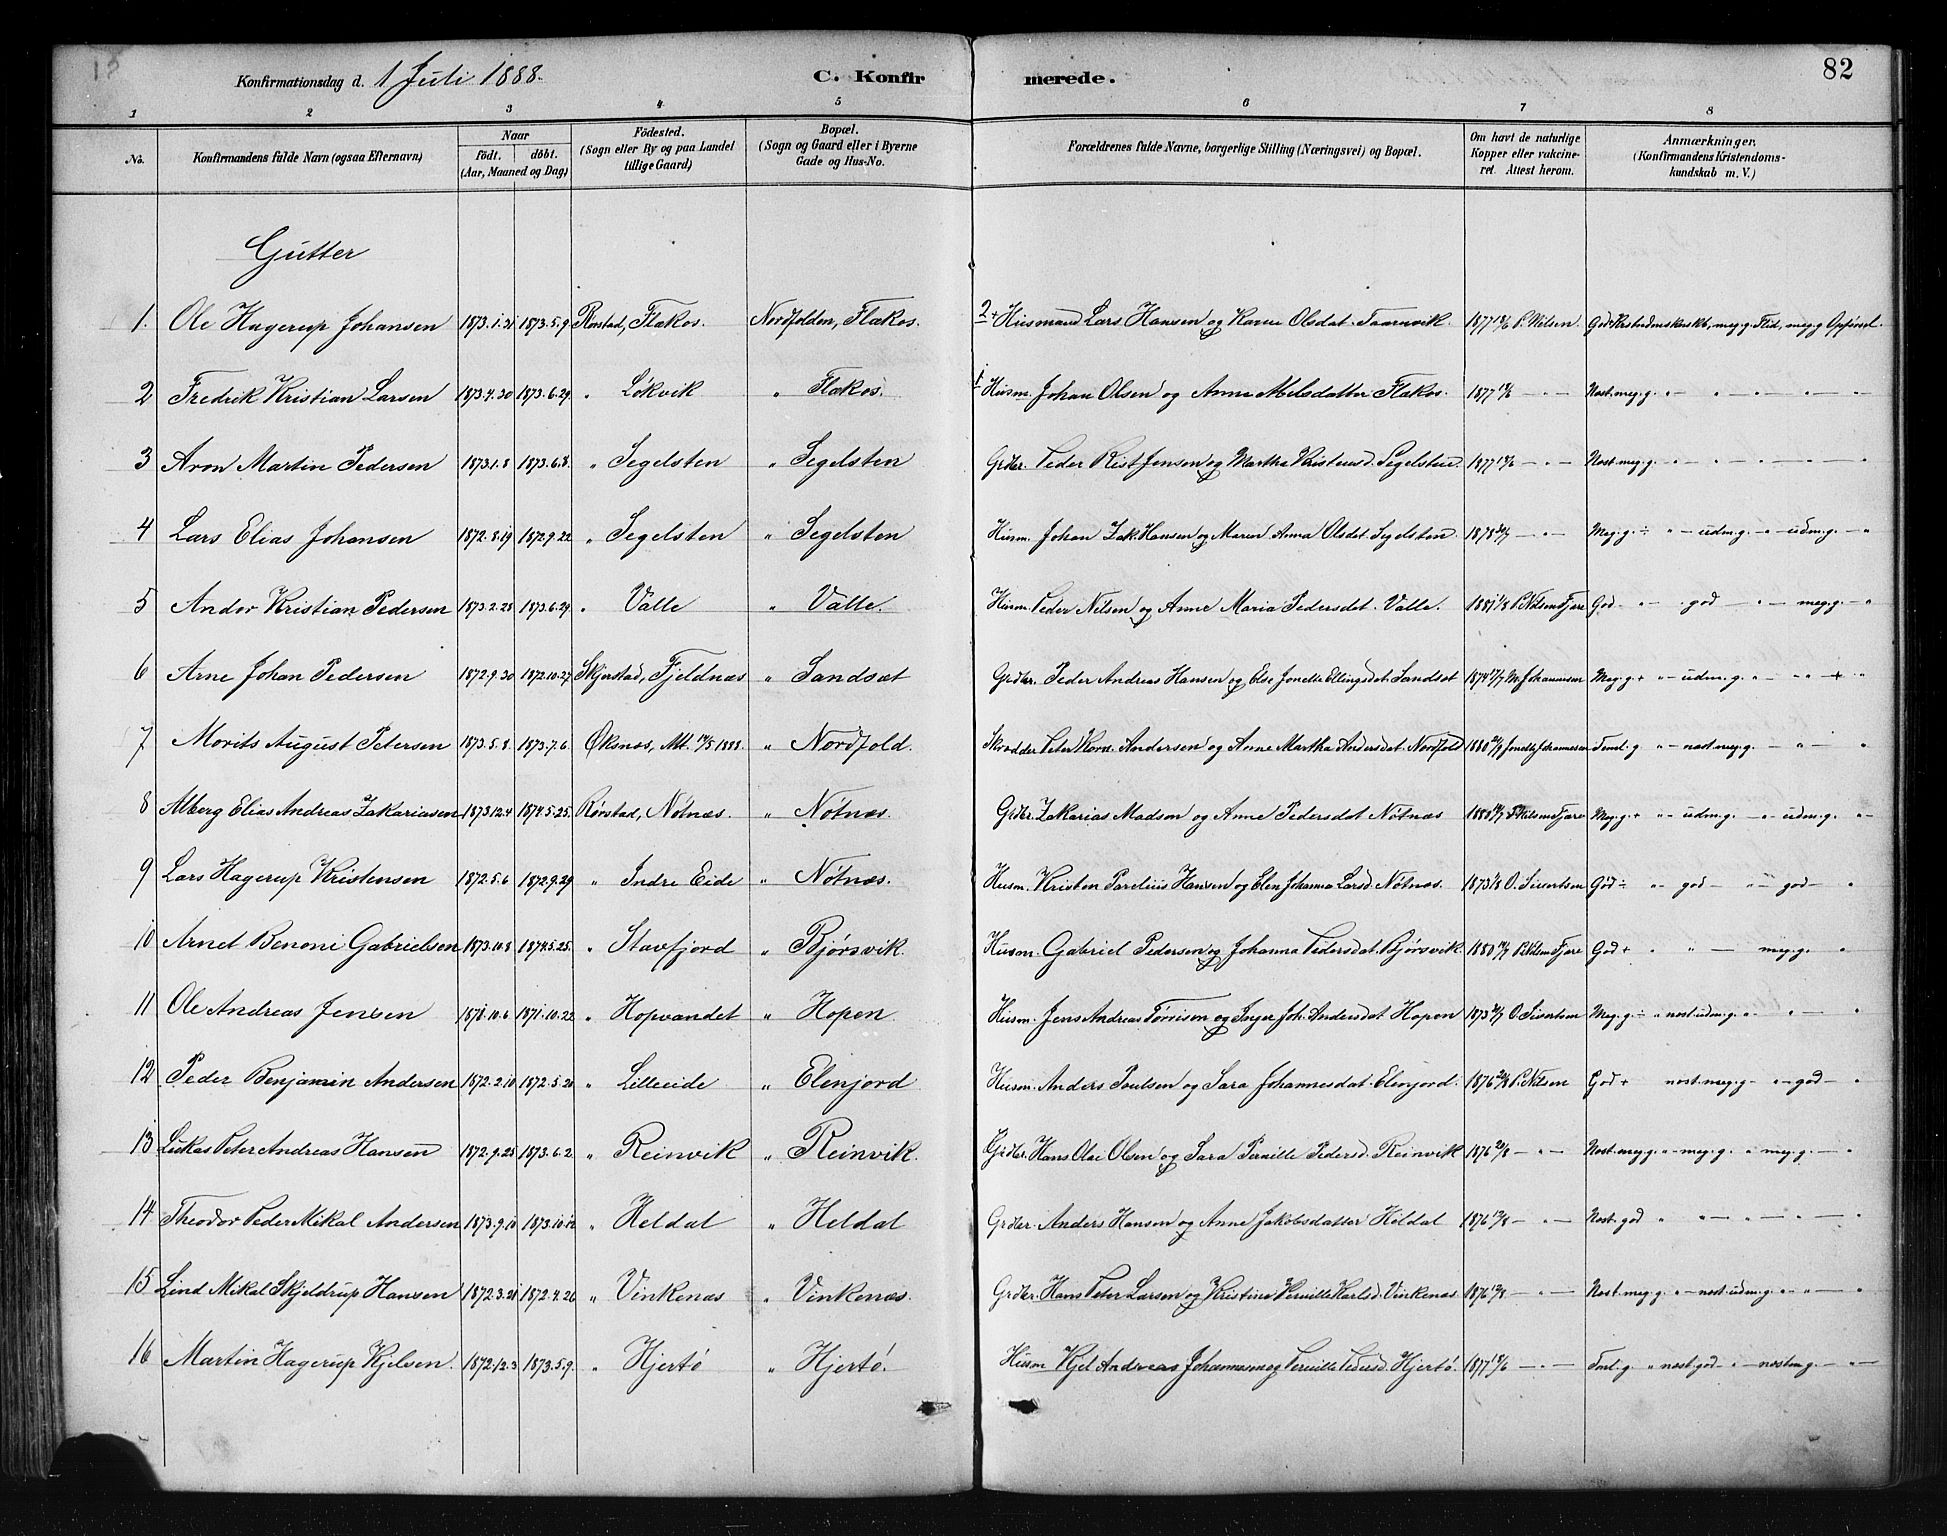 Konfirmationsdag d. 1 Juli 1888. C. Konfirmerede. 82
1 2 3 4 5 6 7 8
No. Konfirmandens fulde Navn (ogsaa Efternavn) Naar Födt. döbt. (Aar, Maaned og Dag) Födested. (Sogn eller By og paa Landet tillige Gaard) Bopæl. (Sogn og Gaard eller i Byerne Gade og Hus-No. Forældrenes fulde Navne, borgerlige Stilling (Næringsvei) og Bopæl. Om havt de naturlige Kopper eller vakcineret. Attest herom. Anmærkninger. (Konfirmandens Kristendomskundskab m. V.)
Gutter
1. Ole Hagerup Johansen 1873.1.31 1873.5.9. Rørstad, Flækos. Nordfolden, Flækos. 2 Husmand Lars Hansen og Karen Olsdat. Taarnvik. 1877 P. Nilsen. God Kristendomskundsk., meg.g. Flid, meg.g Opførsel.
2 Fredrik Kristian Larsen 1873.4.30 1873.6.29. " Løkvik " Flækos. 1 Husm. Johan Olsen og Anne Nilsdatter Flækos. 1877 — " — Nost.meg.g. " — " — " — " — "
3 Aron Martin Pedersen 1873.1.8 1873.6.8. " Segelsten " Segelsten Grdbr. Peder Rist Jensen og Martha Kristensd. Segelsten. 1877 — " — Nost.meg.g. " — " — " — " — "
4 Lars Elias Johansen 1872.8.19 1872.9.22 " Segelsten " Segelsten Husm. Johan Zak. Hansen og Maren Anna Olsdat. Segelsten. 1878 — " — Meg.g ÷ " — udm.g. — " — udm.g. — "
5 Andor Kristian Pedersen 1873.2.28 1873.6.29. " Valle " Valle. Husm. Peder Nilsen og Anne Maria Pedersdat. Valle. 1881 P. Nilsen Fjære God — " — god — " — meg.g. — "
6 Arne Johan Pedersen 1872.9.30 1872.10.27 Skjerstad, Fjeldnæs " Sandsæt Grdbr. Peder Andreas Hansen og Else Jonette Ellingsdat. Sandsæt 1874 M. Johannesen Meg.g + " — udm.g. " — " " + "
7 Morits August Petersen 1873.5.8. 1873.7.6. Øksnæs, Att. 1888. " Nordfold. Skrædder Peter Andersen og Anne Martha Andersdat. Nordfold 1880 Jonette Johannesen Teml.g " — nost.meg.g. — " — "
8 Alberg Elias Andreas Zakariasen 1873.12.4 1874.5.25. Rørstad, Nøtnæs. " Nøtnæs. Grdbr. Zakarias Madsen og Anne Pedersdat Nøtnæs 1880 P. Nilsen Fjære Meg.g + " — udm.g. — " — udm.g. "
9 Lars Hagerup Kristensen 1872.5.6 1872.9.29 " Indre Eide " Nøtnæs. Husm. Kristen Parelius Hansen og Elen Johanna Larsd. Nøtnæs. 1873 O. Sivertsen God ÷ " — god — " — god — "
10 Arnet Benoni Gabrielsen 1873.10.8 1874.5.25. " Stavfjord " Bjørsvik. Husm. Gabriel Pedersen og Johanna Pedersdat. Bjørsvik. 1880 P. Nilsen Fjære God + " " — meg.g. "
11 Ole Andreas Jensen 1871.10.22 " Hopvandet " Hopen Husm. Jens Andreas Torrisen og Inger Joh. Andersdat Hopen 1873 O. Sivertsen Meg.g. ÷ " nost.udm.g " — " — "
12 Peder Benjamin Andersen 1872.2.10 1872.5.20 " Lilleeide " Elenjord Husm. Anders Poulsen og Sara Johannesdat. Elenjord. 1876 P. Nilsen God + nost.meg.g — " — god — "
13 Lukas Peter Andreas Hansen 1872.9.25 1873.6.2. " Reinvik " Reinvik. Grdbr. Hans Olai Olsen og Sara Pernille Pedersd. Reinvik 1876 — " — Nost.meg.g. " — meg.g. " meg.g. — "
14 Theodor Peder Mikal Andersen 1873.9.10 1873.10.12 " Heldal " Heldal Grdbr. Anders Hansen og Anne Jakobsdatter Heldal 1876 — " — Nost.god " " — " — " — "
15 Lind Mikal Skjeldrup Hansen 1872.3.21 1872.4.26 " Vinkenæs " Vinkenæs. Grdbr. Hans Peter Larsen og Kristine Pernille Karlsd. Vinkenæs. 1876 — " — Nost.meg.g. " — nost.udm.g. " — " — "
16 Martin Hagerup Kjelsen. 1872.12.3 1873.5.9. " Hjertø " Hjertø. Husm Kjel Andreas Johannesen og Pernille Pedersd. Hjertø. 1877 — " — Teml.g. " nost.god — " — nost.m.g. — " —